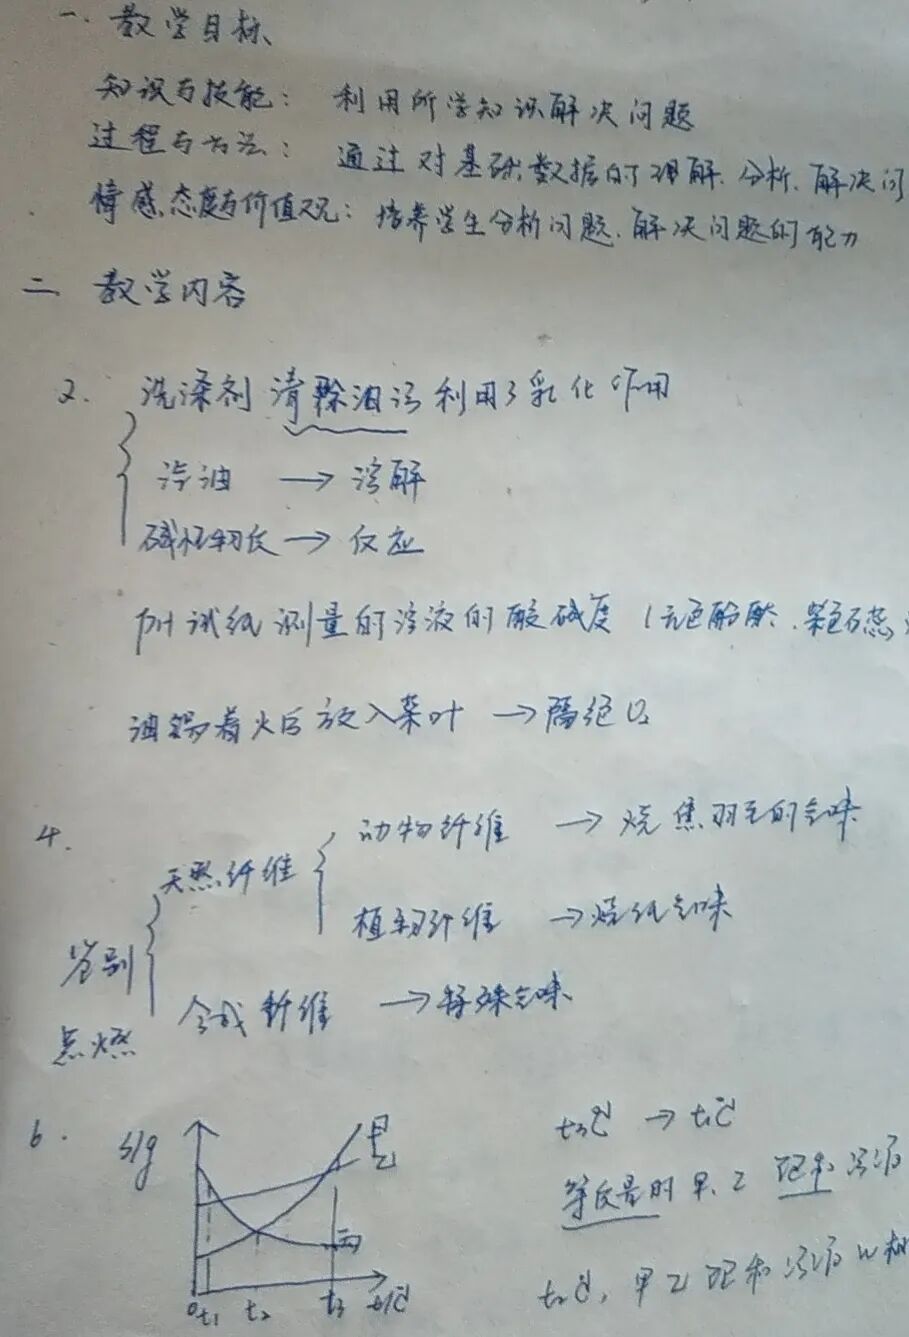 一、教学目标
知识与技能：利用所学知识解决问题
过程与方法：通过对基础数据的理解、分析、解决问
情感、态度与价值观：培养学生分析问题、解决问题的能力
二、教学内容
2. 洗涤剂清除油污利用了乳化作用
汽油 → 溶解
碱性物质 → 反应
PH试纸测量的溶液的酸碱度（无色酚酞、紫色石蕊
油锅着火后放入菜叶 → 隔绝O₂
4.
动物纤维 → 烧焦羽毛的气味
天然纤维
植物纤维 → 烧纸气味
鉴别
合成纤维 → 特殊气味
点燃
6. S/g 甲 乙 丙
0 t₁ t₂ t₃ t/℃
t₃℃ → t₁℃
等质量的甲、乙 饱和溶液
t₂℃，甲乙饱和溶液W